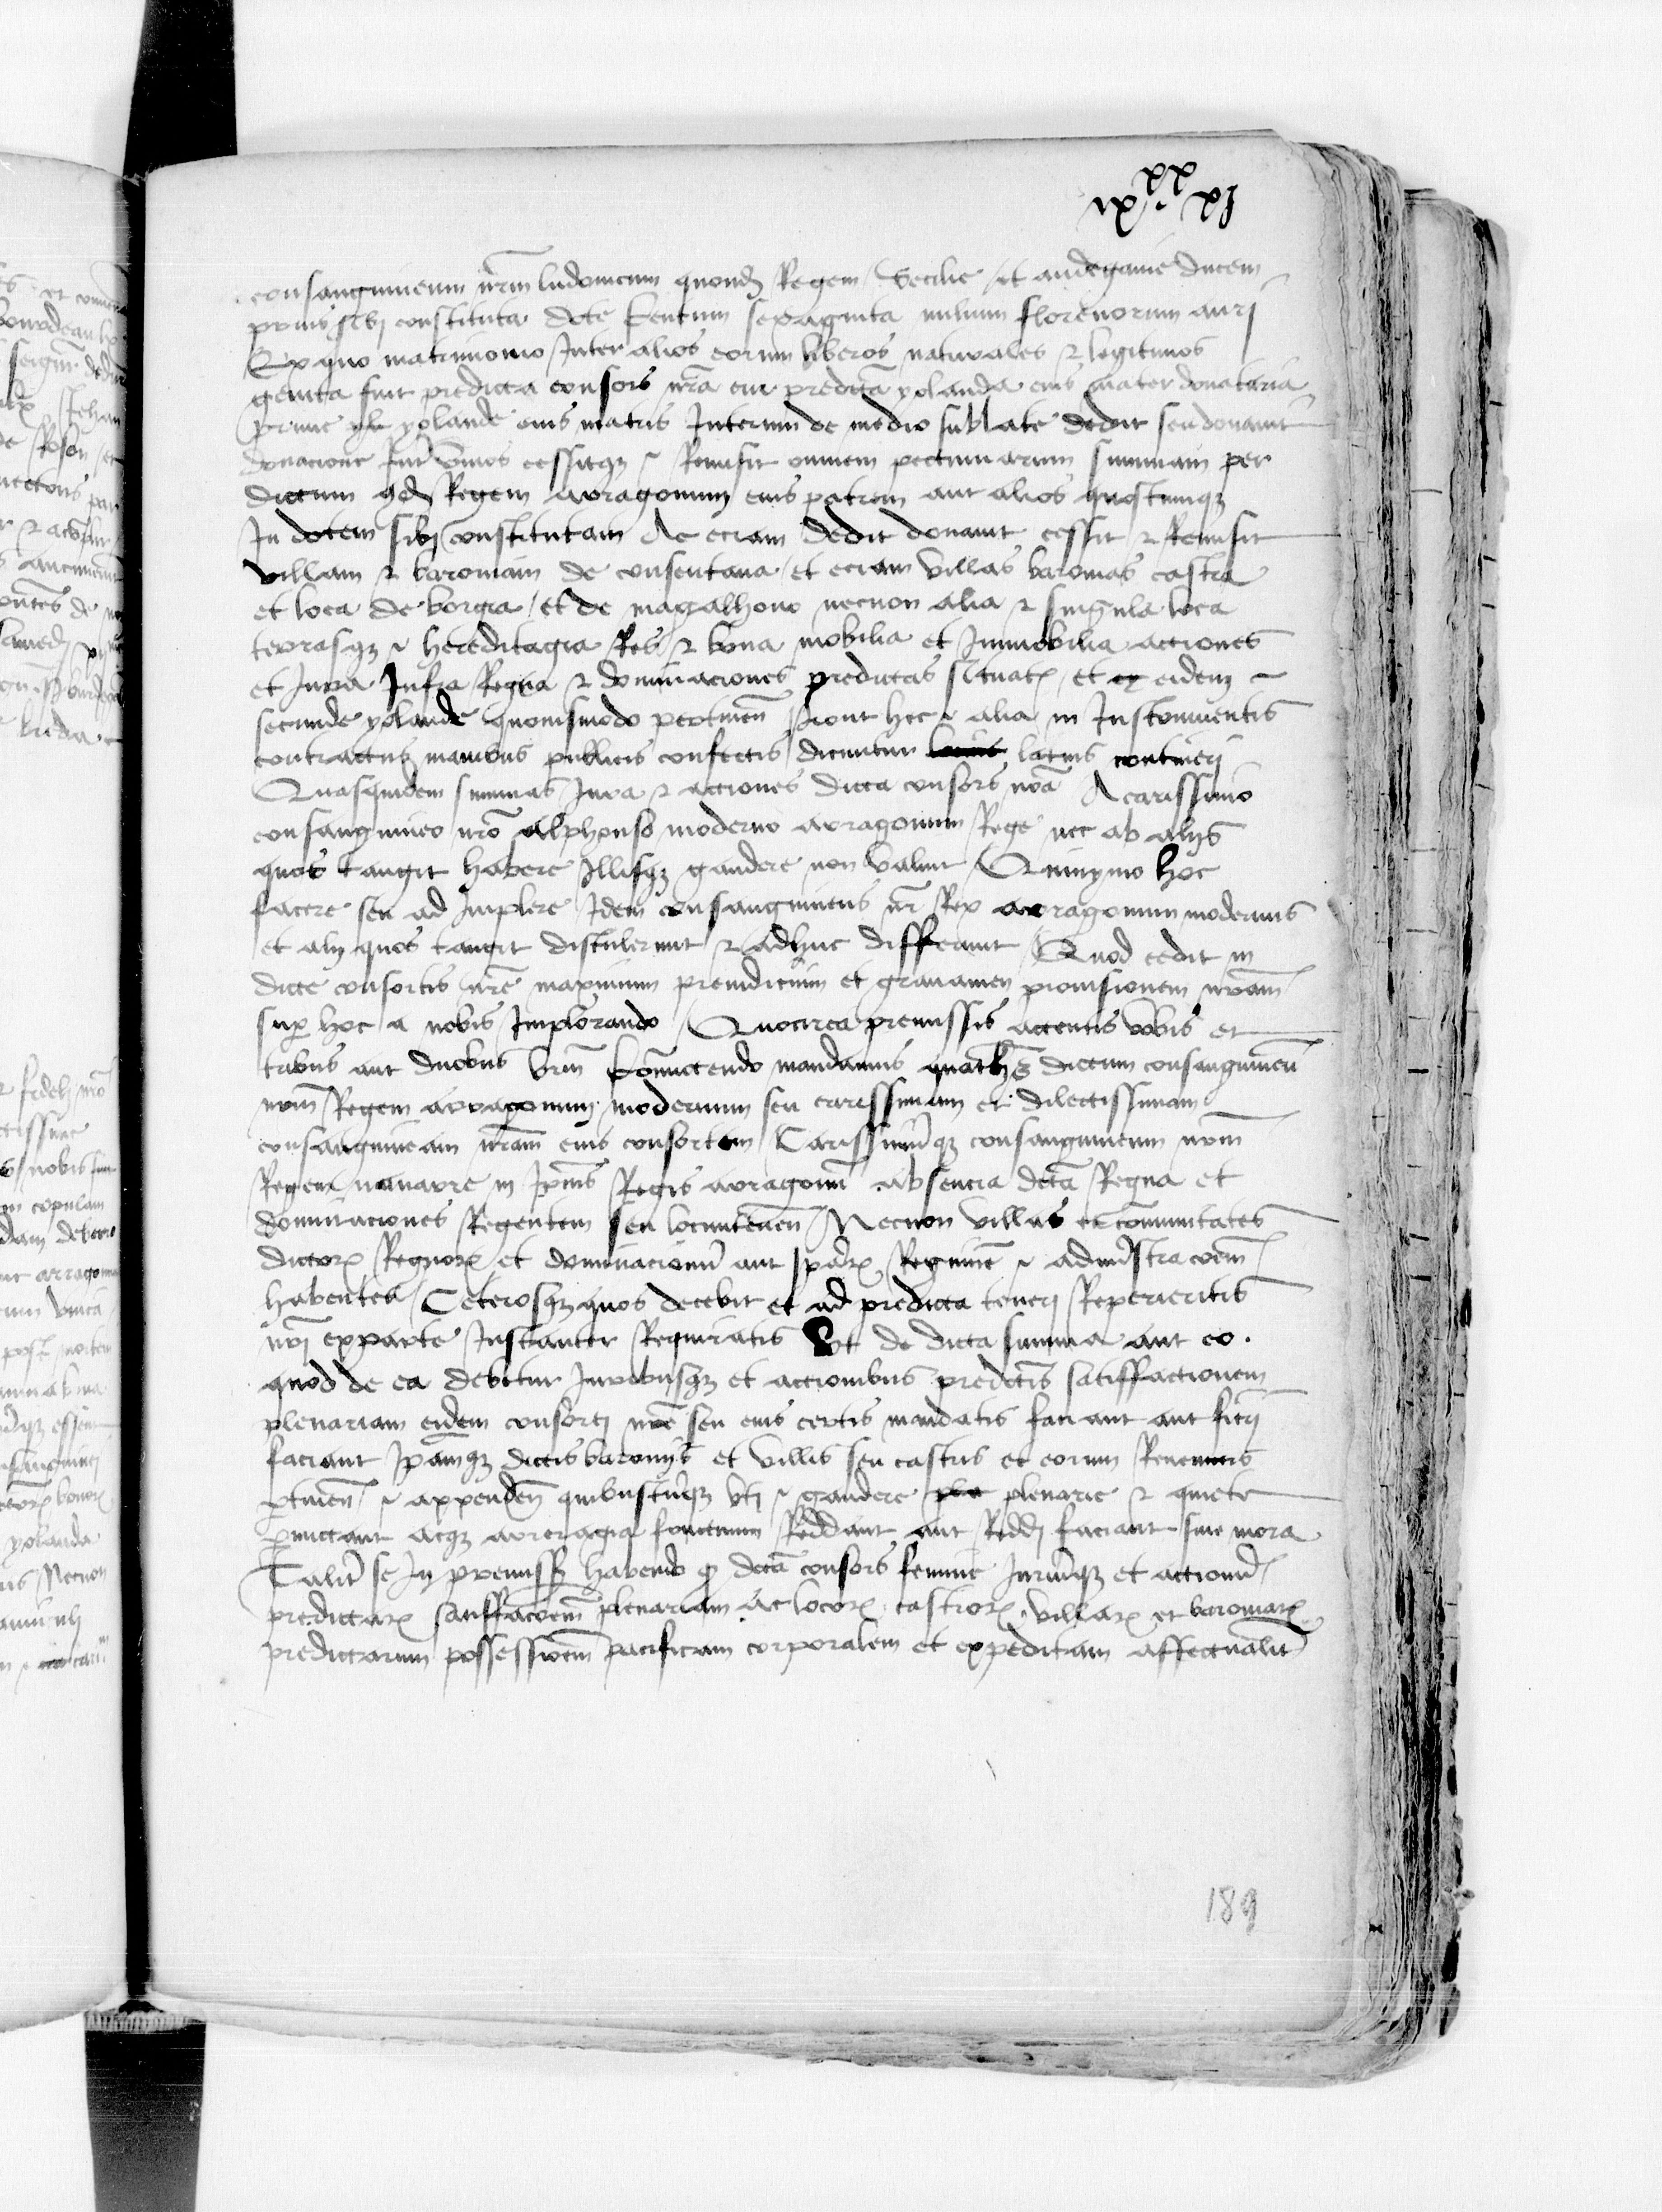 ixˣˣ xi
consanguineum nrm̃ ludouicum quond̃ Regem Secilie et andegauie ducem
prius sibi constituta dote Centum sexaginta milium florenorum aurj
Ex quo matrimonio Inter alios eorum liberos naturales & legitimos
genita fuit predicta consors nrã cui predictã yolanda eius mater donataria
prime yolande eius matris Interim de medio sublate dedit seu donauit
donacione Inter viuos cessitqȝ & Remisit omnem pecuniarum summam per
dictum qd̃ Regem arragonum eius patrem aut alios quoscumqȝ
In dotem sibj constitutam Ac eciam dedit donauit cessit & Remisit
villam & baroniam de consentana et eciam villas baronias castra
et loca de borgia et de magalhono necnon alia & singula loca
terrasqȝ & hereditagia Res & bona mobilia et Immobilia acciones
et Jura Infra Regna & dominaciones predictas situat̃ et eidem
secunde yolande quouismodo pertineñ prout hec & alia in Instrumentis
contractuȝ manibus publicis confectis dicuntur latius contineri
Quasquidem summas Jura & acciones dicta consors nrã A carissimo
consanguineo nrõ alphonso moderno arragonum Rege nec ab alijs
quos tangit habere Illisqȝ gaudere non valuit Quinymo hoc
facere seu ad Implere Idem consanguineus nr̃ Rex arragonum modernus
et alij quos tangit distulerunt & adhuc differunt Quod cedit in
dicte consortis nrẽ maximum preiudicium et grauamen prouisionem nram̃
sup hoc a nobis Implorando Quocirca premissis attentis vobis et
tribus aut duobus vrm̃ Com̃ittendo mandamus quatñs dictum consanguineũ
nrm̃ Regem arragonum modernum seu carissimam et dilectissimam
consanguineam nram̃ eius consortem Carissimũqȝ consanguineum nrm̃
Regem nauarre in ipius Regis arragonũ absencia dictã Regna et
dominaciones Regentem seu locumteneñ Necnon villas et com̃unitates
dictorꝝ Regnorꝝ et dominacionũ aut Ipãrꝝ Regimẽ & admĩstracoem̃
habentes Ceterosqȝ quos decebit et ad predicta tenerj Reperieritis
nrj̃ exparte Instanter Requiratis Vt de dicta summa aut eo
quod de ea debetur Juribusqȝ et accionibus predictis̃ satiffactionem
plenariam eidem consortj nrẽ seu eius certis mandatis faciant aut fierj
faciant Ipãmqȝ dictis baronijs et villis seu castris et eorum Reuenutis
ptineñ & appendeñ quibuscũqȝ vtj & gaudere plenarie & quiete
pmittant acqȝ arreragia fructuum Reddant aut Reddj faciant sine mora
Talit̃ se In premissȝ habendo q dictã consors summe Juriũqȝ et accionũ
predictarꝝ satiffacoem̃ plenariam Ac locorꝝ castrorꝝ villarꝝ et baroniarꝝ
predictarum possessioem̃ pacificam corporalem et expeditam affectualit̃
189